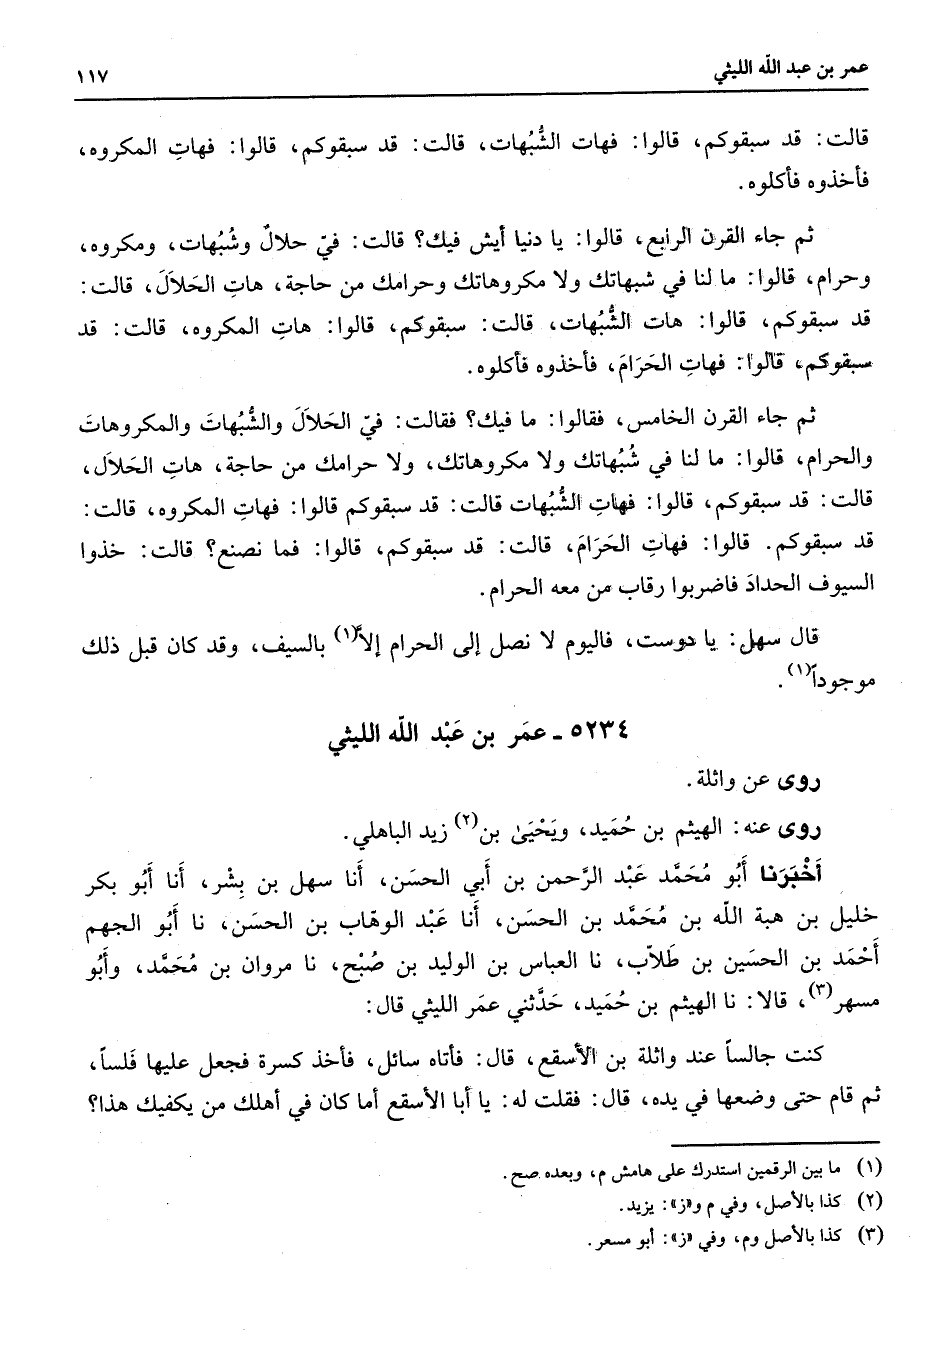 عمر بن عبد الله الليثي
١١٧
قالت: قد سبقوكم، قالوا: فهات الشُّبُهات، قالت: قد سبقوكم، قالوا: فهاتِ المكروه،
فأخذوه فأكلوه.
ثم جاء القرن الرابع، قالوا: يا دنيا أيش فيك؟ قالت: فيّ حلالٌ وشُبُهات، ومكروه،
وحرام، قالوا: ما لنا في شبهاتك ولا مكروهاتك وحرامك من حاجة، هاتِ الحَلاَلَ، قالت:
قد سبقوكم، قالوا: هات الشُّبُهات، قالت: سبقوكم، قالوا: هاتِ المكروه، قالت: قد
سبقوكم، قالوا: فهاتِ الحَرَامَ، فأخذوه فأكلوه.
ثم جاء القرن الخامس، فقالوا: ما فيك؟ فقالت: فيّ الحَلاَلَ والشُّبُهاتَ والمكروهاتَ
والحرام، قالوا: ما لنا في شُبُهاتك ولا مكروهاتك، ولا حرامك من حاجة، هاتِ الحَلاَل،
قالت: قد سبقوكم، قالوا: فهاتِ الشُّبُهات قالت: قد سبقوكم قالوا: فهاتِ المكروه، قالت:
قد سبقوكم. قالوا: فهاتِ الحَرَامَ، قالت: قد سبقوكم، قالوا: فما نصنع؟ قالت: خذوا
السيوف الحدادَ فاضربوا رقاب من معه الحرام.
قال سهل: يا دوست، فاليوم لا نصل إلى الحرام إلاَّ(١) بالسيف، وقد كان قبل ذلك
موجوداً(١).
٥٢٣٤ ـ عمَر بن عَبْد الله الليثي
روى عن واثلة.
روى عنه: الهيثم بن حُمَيد، ويَحْيَىٰ بن(٢) زيد الباهلي.
أَخْبَرَنا أَبُو مُحَمَّد عَبْد الرَّحمن بن أَبي الحسَن، أَنا سهل بن بِشْر، أَنا أَبُو بكر
خليل بن هبة الله بن مُحَمَّد بن الحسَن، أَنا عَبْد الوهَّاب بن الحسَن، نا أَبُو الجهم
أَحْمَد بن الحسَين بن طَلاّب، نا العباس بن الوليد بن صُبْح، نا مروان بن مُحَمَّد، وأَبُو
مسهر(٣)، قالا: نا الهيثم بن حُمَيد، حَدَّثني عمَر الليثي قال:
كنت جالساً عند واثلة بن الأسقع، قال: فأتاه سائل، فأخذ كسرة فجعل عليها فَلساً،
ثم قام حتى وضعها في يده، قال: فقلت له: يا أبا الأسقع أما كان في أهلك من يكفيك هذا؟
(١) ما بين الرقمين استدرك على هامش م، وبعده صح.
(٢) كذا بالأصل، وفي م و«ز»: يزيد.
(٣) كذا بالأصل وم، وفي «ز»: أبو مسعر.